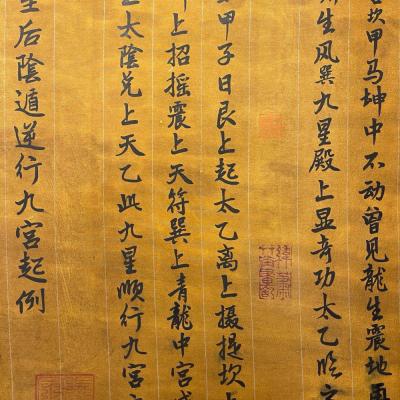 坎甲马坤中不动曾见龍生震地
生风巽九星殿上显奇功太乙临之
甲子日艮上起太乙离上摄提坎上
上招摇震上天符巽上青龍中宫
上太陰兑上天乙此九星顺行九宫
后陰遁逆行九宫起例